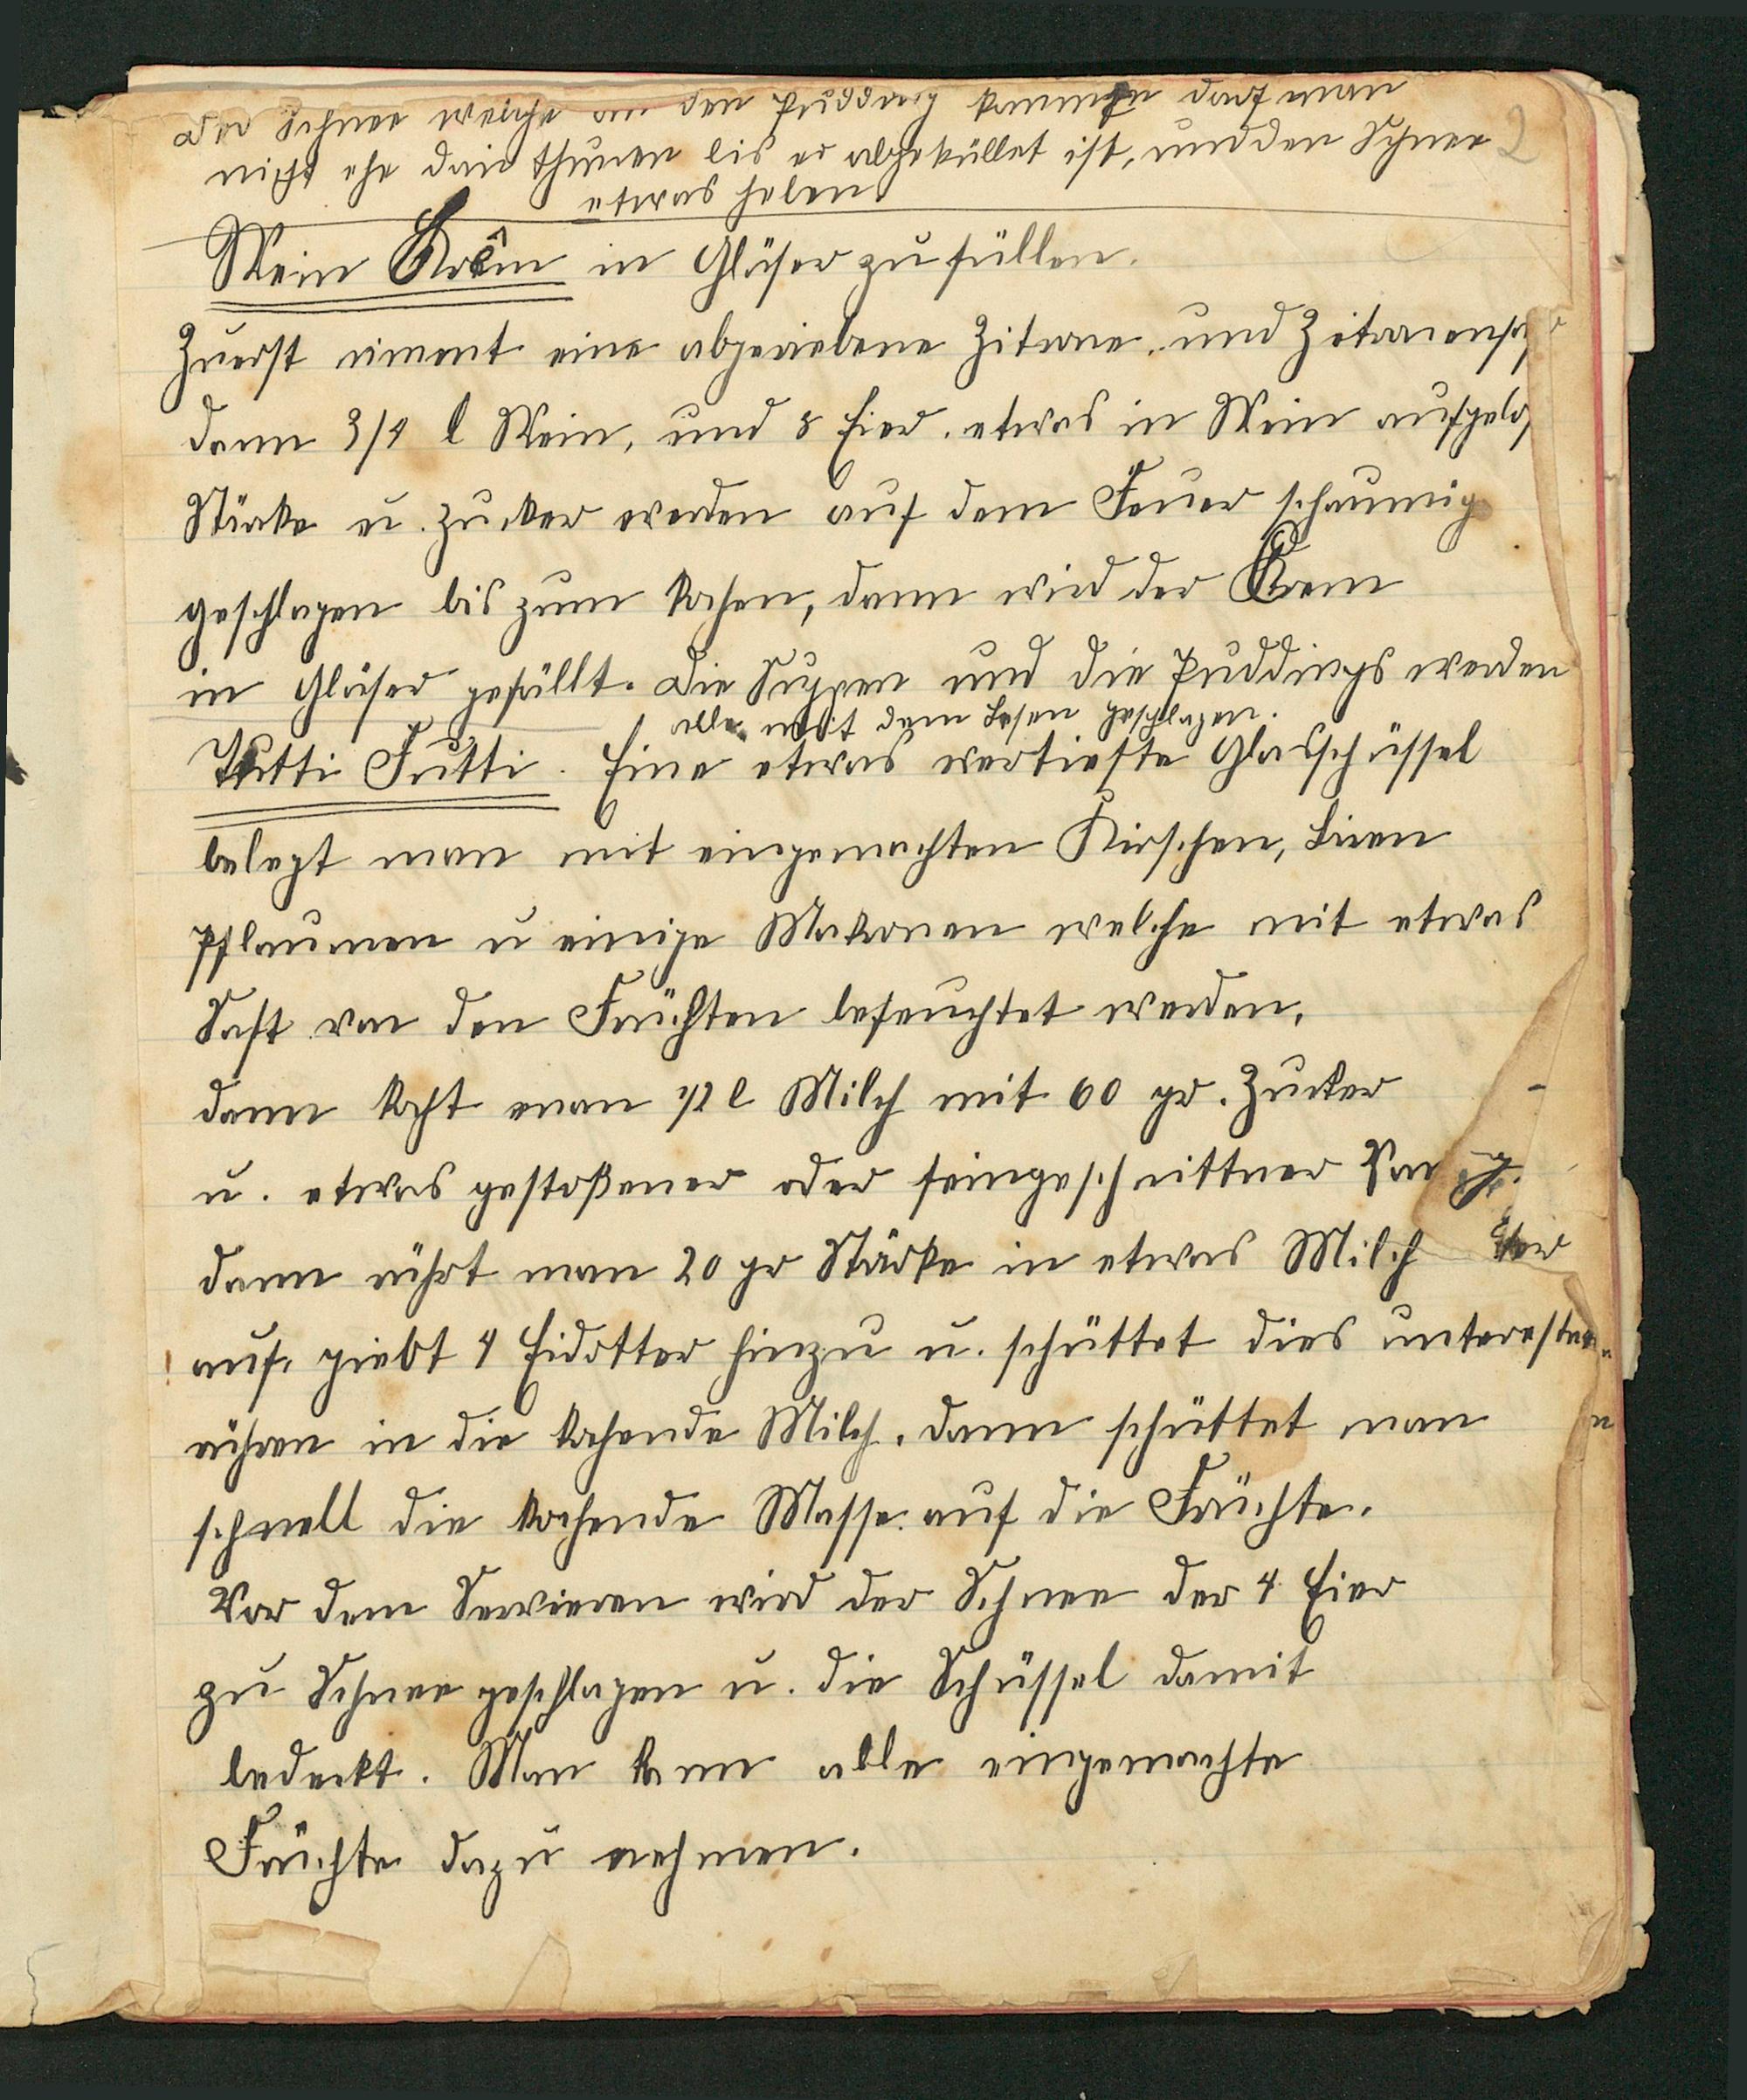 Der Schnee welche an den Pudding kommen darf man
nicht ehe darin thunen bis er abgeküllet ist, und den Schnee 2
etwas heben
Wein Krêm in Gläser zu füllen.
Zuerst niment eine abgeriebene Zitrone. und Zitronensa
dann 3/4 l Wein, und 8 Eier. etwas in Wein aufgelös
Stärke u. Zucker werden auf dem Feuer schaumig
geschlagen bis zum kochen, dann wird der Krem
in Gläser gefüllt. Die Suppen und die Puddings werden
alle mit dem Besen geschlagen.
Tutti Futti. Eine etwas vertiefte Glasschüssel
belegt man mit eingemachten Kirschen, Biren
Pflaumen u einige Makronen welche mit etwas
Saft von den Früchten befeuchtet werden.
dann kocht man 1/2 l Milch mit 60 gr. Zucker
u. etwas gestoßener oder feingeschnittner
dann rührt man 20 gr Stärke in etwas Milch
auf. giebt 4 Eidotter hinzu u. schüttet dies unter
rühren in die kochende Milch. dann schüttet man
schnell die kochende Masse auf die Früchte.
Vor dem Servieren wird der Schnee der 4 Eier
zu Schnee geschlagen u. die Schüssel damit
bedeckt. Man kann alle eingemachte
Früchte dazu nehmen.